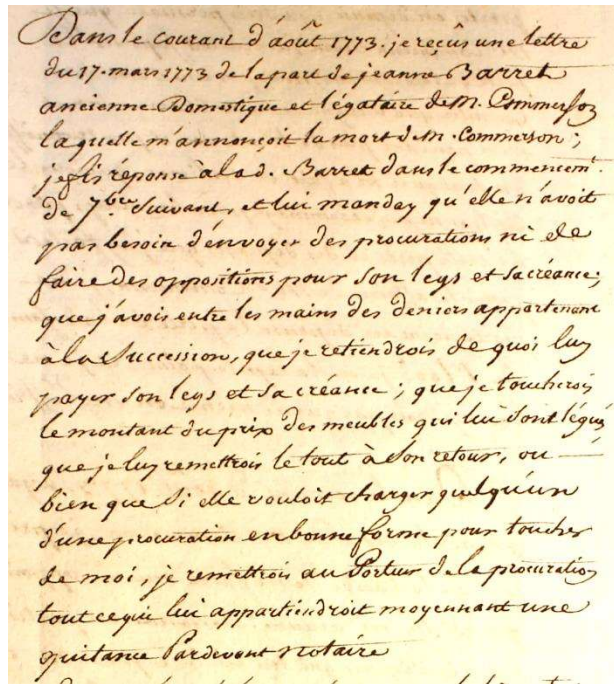 Dans le courant d'août 1773. je reçûs une lettre
du 17. mars 1773 de la part de jeanne Barret
ancienne Domestique et légataire de M. Commerson
la quelle m'annonçoit la mort de M. Commerson;
je fis réponse à lad. Barret dans le commencemt.
de 7bre Suivant, et lui manday qu'elle n'avoit
pas besoin d'envoyer des procurations ni de
faire des oppositions pour son legs et sa créance;
que j'avois entre les mains des deniers appartenant
à la Succession, que je retiendrois de quoi luy
payer son legs et sa créance; que je toucherois
le montant du prix des meubles qui lui sont légués
que je luy remettrois le tout à son retour, ou
bien que si elle vouloit charger quelqu'un
d'une procuration en bonne forme pour toucher
de moi, je remettrois au Porteur de la procuration
tout ce qui lui appartiendroit moyennant une
quitance Pardevant notaire